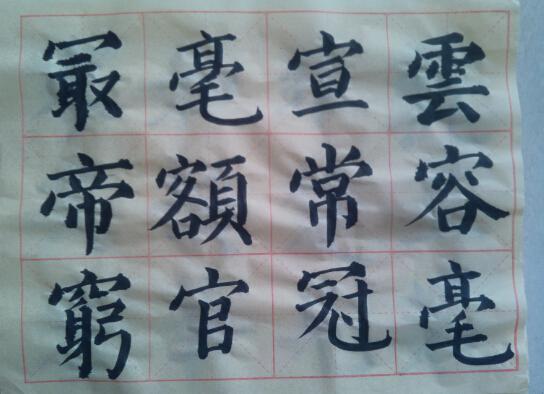 雲容毫
宣常冠
毫額官
冣帝窮